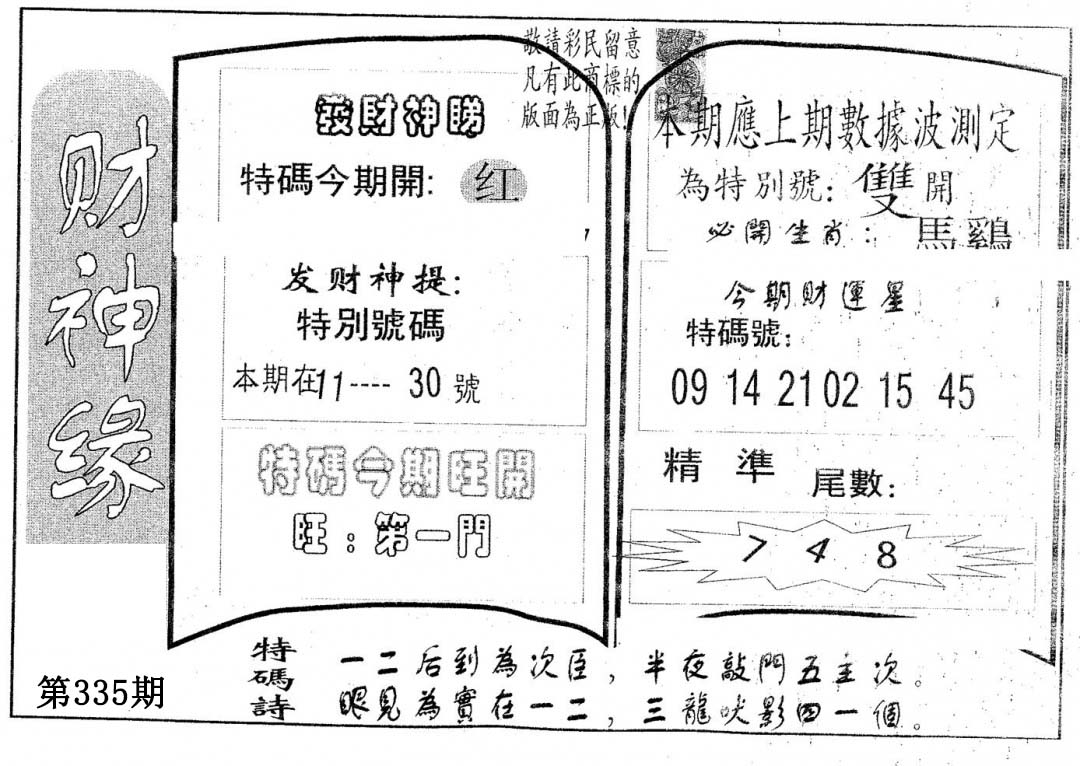 财神缘
第335期
敬請彩民留意
凡有此商標的
版面為正版!
發財神睇
特碼今期開: 红
发财神提:
特別號碼
本期在11---- 30 號
特碼今期旺開
旺:第一門
本期應上期數據波測定
為特別號: 雙 開
必開生肖: 馬鷄
今期財運星
特碼號:
09 14 21 02 15 45
精準 尾數:
7 4 8
特碼詩
一二后到為次臣, 半夜敲門五主次。
眼見為實在一二, 三龍吠影四一個。